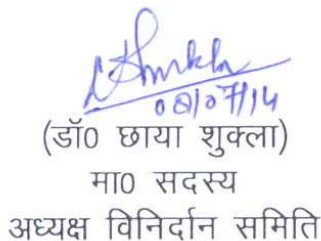 Shukla
08/07/14
(डॉ0 छाया शुक्ला)
मा0 सदस्य
अध्यक्ष विनिर्दान समिति